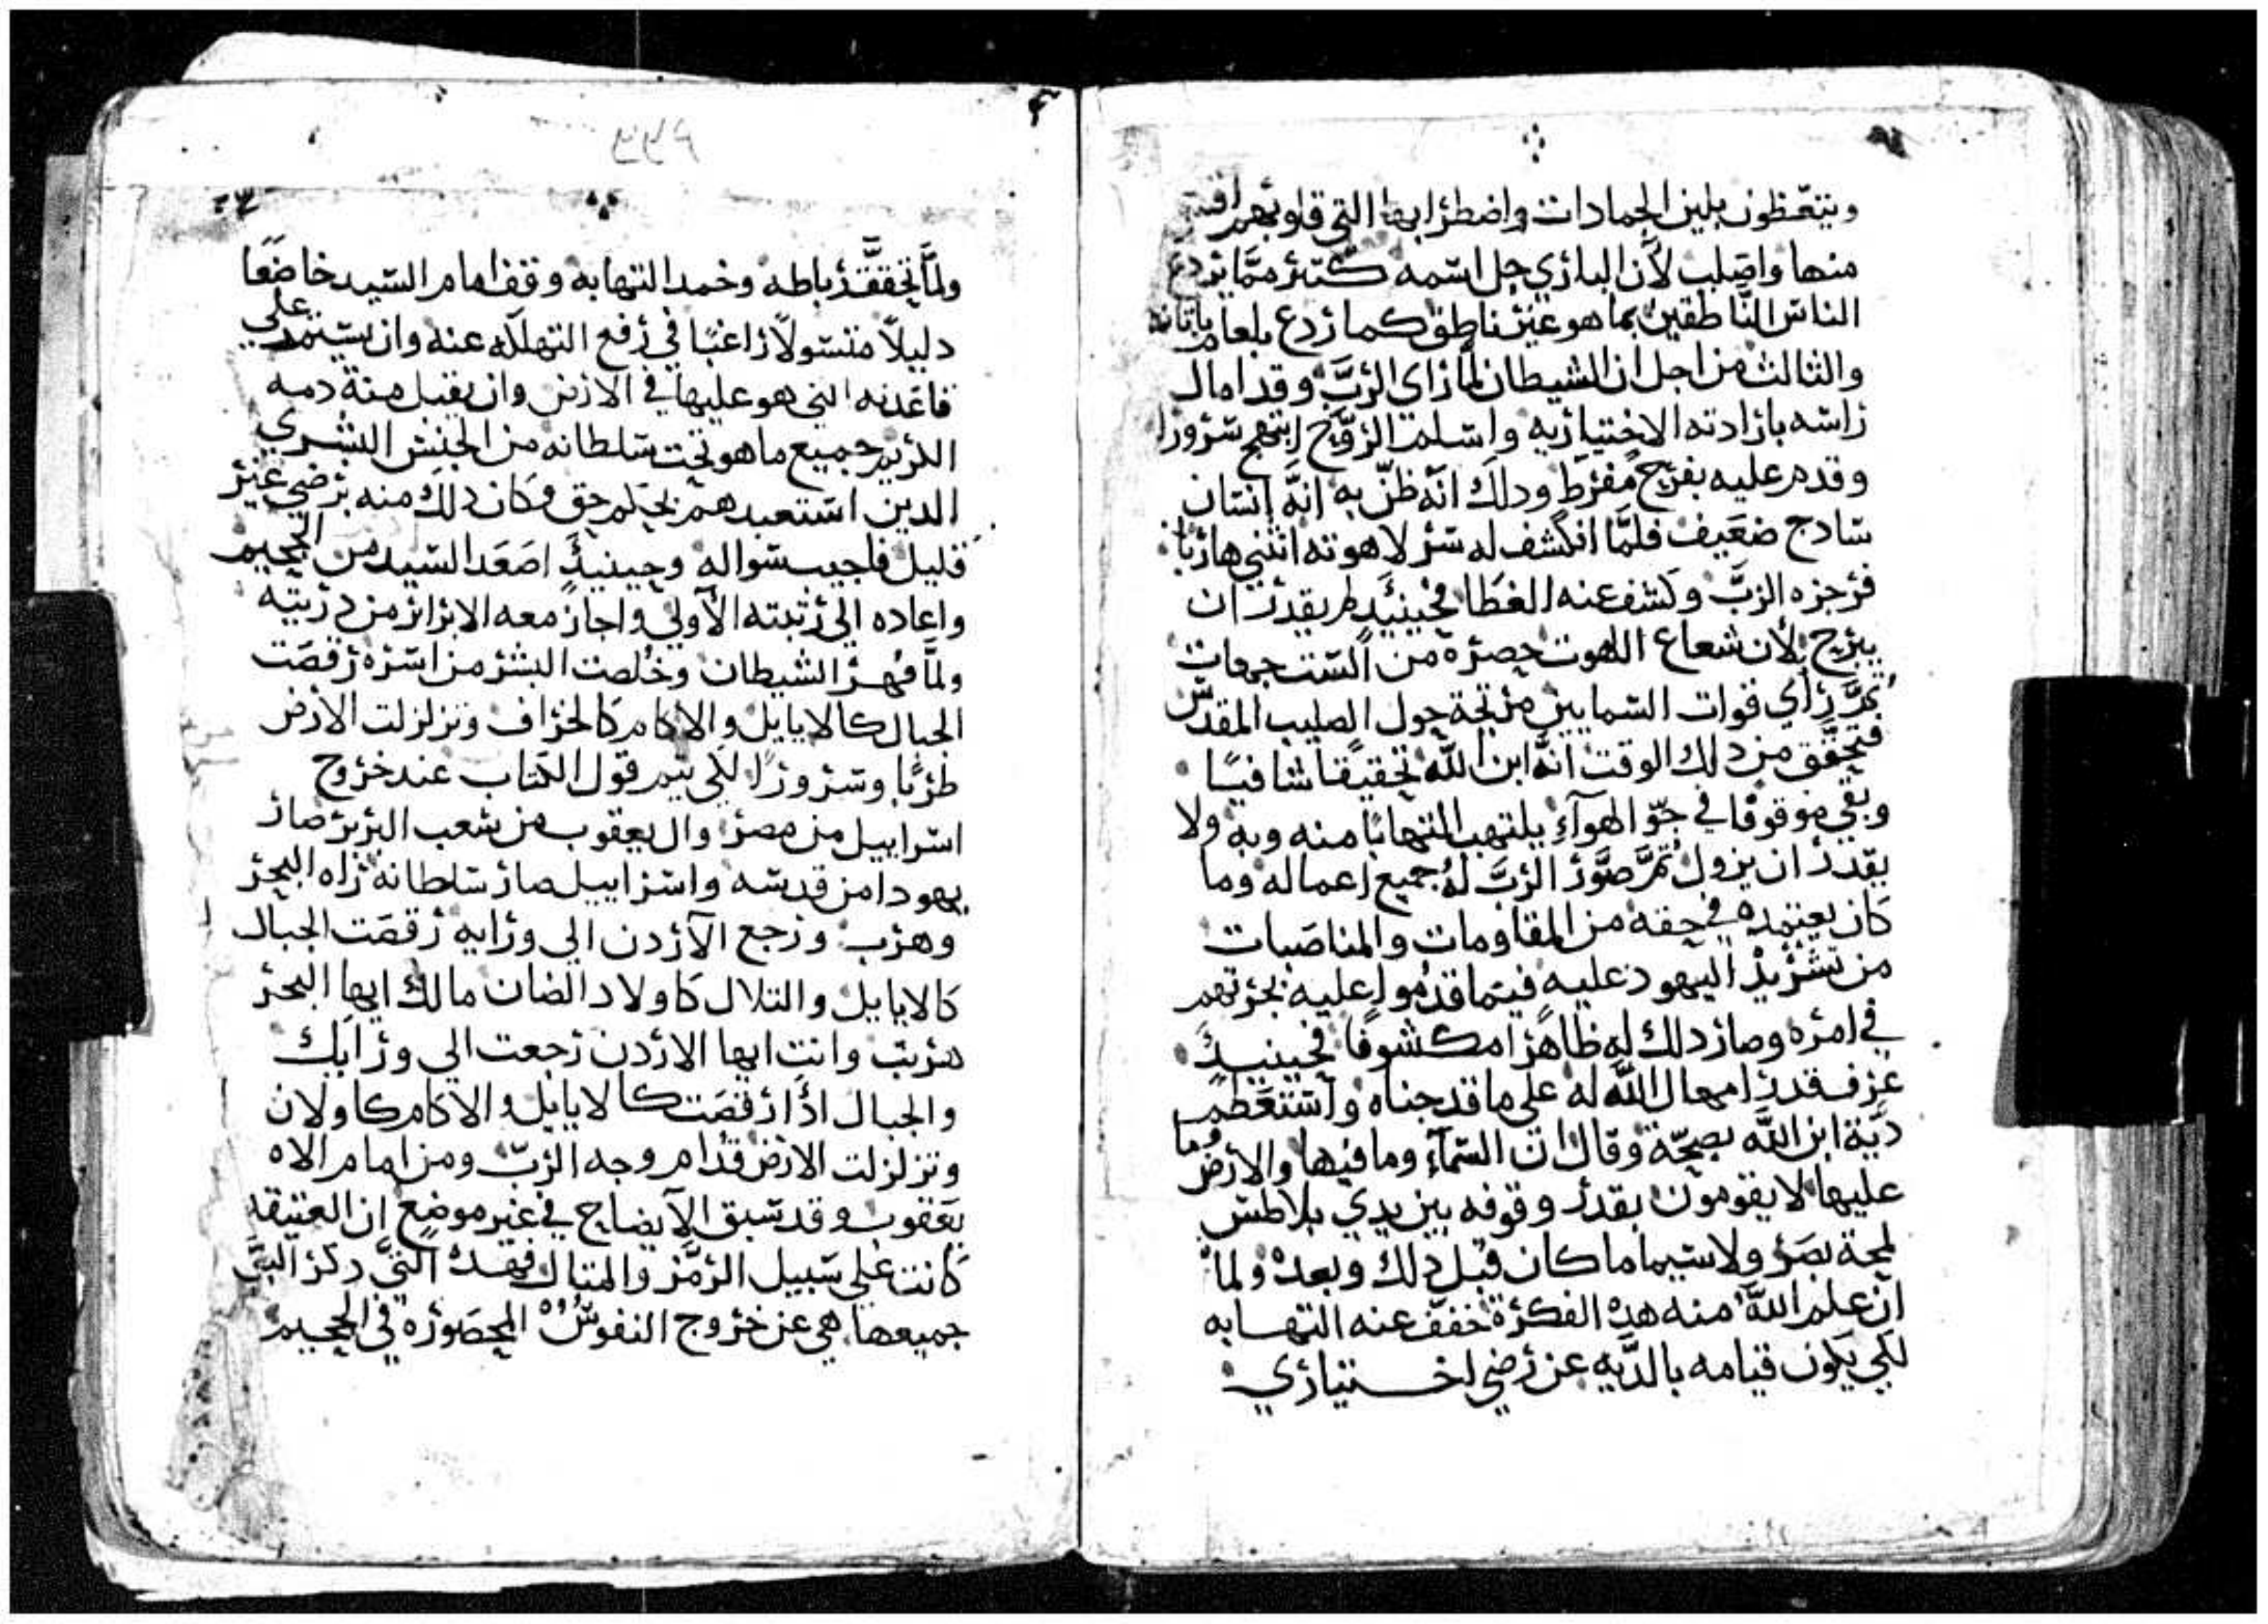 ويتعظون بلين الجمادات واضطرابها التي قلوبهم اقسى
منها واصلب لأن الباري جل اسمه كتير ممّا يردع
الناس النّاطقين بما هو غير ناطق كما ردع بلعام باتانه
والثالث من اجل ان الشيطان لمّا راى الربّ وقد امال
راسه بارادته الاختياريه واسلم الرّوح ابتهج سرورا
وقدم عليه بفرح مفرط ودلك انّه ظنّ به انّه انسان
سادج ضعيف فلمّا انكشف له سر لاهوته انثنى هاربا
فزجره الربّ وكشف عنه الغطا فحينيدٍ لم يقدر ان
يبرح لأن شعاع اللاهوت حصره من الست جهات
ثمّ راي قوات السمايين مرتجة حول الصليب المقدس
فتحقّق من دلك الوقت انّه ابن الله تحقيقا شافيًا
وبقي موقوفا في جوّ الهوآءِ يلتهب التهابا منه وبه ولا
يقدر ان يزول ثمّ صوّر الربّ له جميع اعماله وما
كان يعتمده في حقه من المقاومات والمناصبات
من تشريد اليهود عليه فيما قدموا عليه بجرتهم
في امره وصار دلك له ظاهرا مكشوفا فحينيدٍ
عرف قدر امهال الله له على ما قد جناه واستعظم
ديّة ابن الله بصحّة وقال ان السّمآءِ وما فيها والأرض وما
عليها لا يقومون بقدر وقوفه بين يدي بلاطس
لمحة بصر ولا سيما ما كان قبل دلك وبعده ولما
ان علم الله منه هده الفكرة خفف عنه التهابه
لكي يكون قيامه بالديّه عن رضي اختياري
ولمّا تحقق رباطه وخمد التهابه وقف امام السيد خاضعًا
دليلاً متسولاً راغبًا في رفع التهلكه عنه وان يستمر علي
قاعدته التي هو عليها في الارض وان يقبل منة دمه
الكريم جميع ما هو تحت سلطانه من الجنس البشري
الدين استعبدهم بحكم حق وكان دلك منه برضي غير
قليل فاجيب سواله وحينيدٍ اصعد السيد من الجحيم
واعاده الي رتبته الأولي واجاز معه الابرار من دريته
ولمّا قهر الشيطان وخلصت البشر من اسره رقصت
الجبال كالايايل والاكام كالخراف وتزلزلت الارض
طربًا وسرورًا لكي يتم قول الكتاب عند خروج
اسراييل من مصر وال يعقوب من شعب البربر صار
يهودا من قدسه واسراييل صار سلطانه راه البحر
وهرب ورجع الآردن الي ورايه رقصت الجبال
كالايايل والتلال كاولاد الضان مالك ايها البحر
هربت وانت ايها الاردن رجعت الي ورايك
والجبال ادا رقصت كالايايل والاكام كاولان
وتزلزلت الارض قدام وجه الربّ ومن امام الاه
يعقوب وقد سبق الايضاح في غير موضع ان العتيقه
كانت علي سبيل الرمز والمتال فهده التي دكر النبيّ
جميعها هي عن خروج النفوس المحصوره في الجحيم